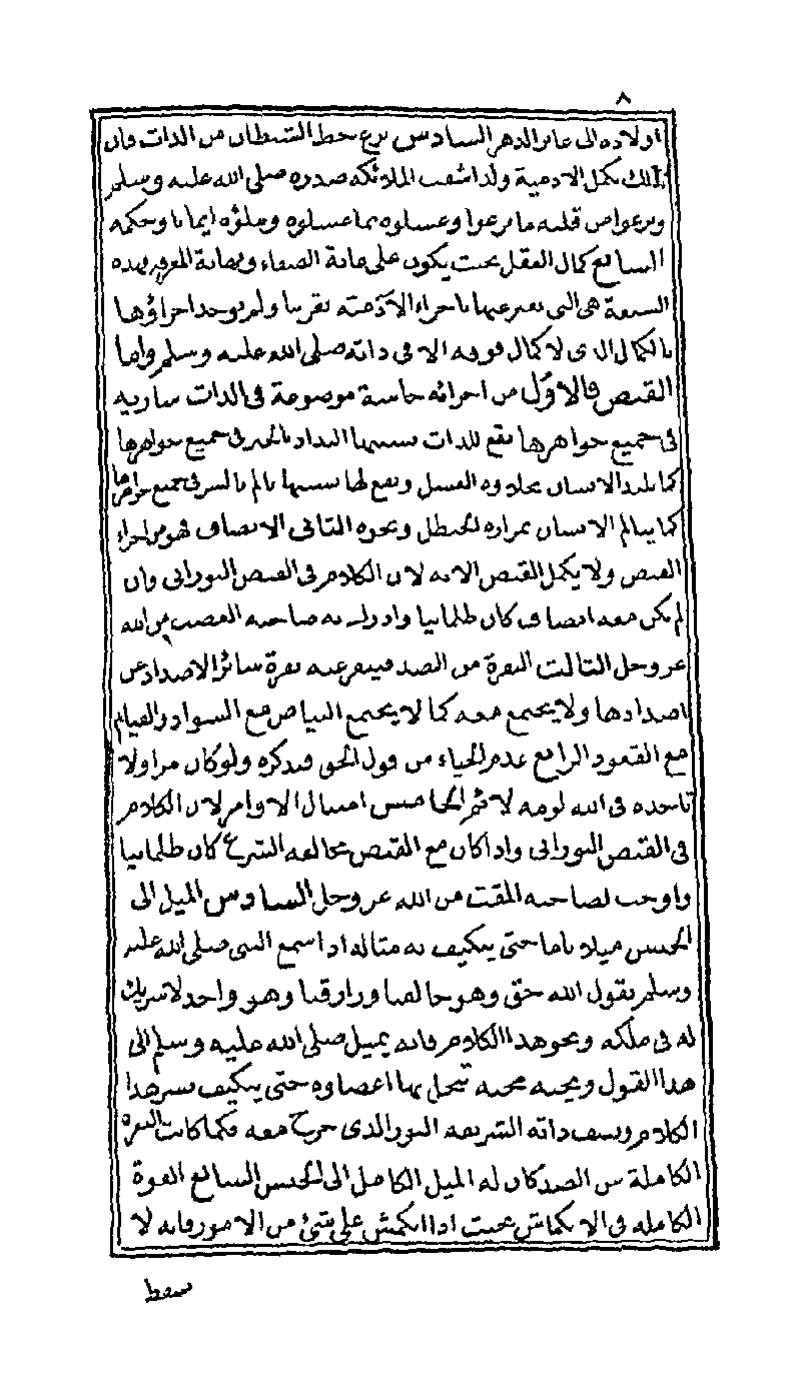 ٨
اولاده الى غابر الدهر السادس نزع حظ الشيطان من الذات فان
بذلك تكمل الآدمية ولذا شقت الملائكة صدره صلى الله عليه وسلم
ونزعوا من قلبه ما نزعوا وغسلوه بما غسلوه وملؤه ايمانا وحكمة
السابع كمال العقل بحيث يكون على غاية الصفاء ونهاية المعرفة فهذه
السبعة هي التي نعبر عنها باجزاء الآدمية تقريبا ولم يوجد اجزاؤها
بالكمال الذي لا كمال فوقه الا في ذاته صلى الله عليه وسلم واما
القبض فالاول من اجزائه حاسة موضوعة في الذات سارية
في جميع جواهرها يقع للذات بسببها التذاذ بالخير في جميع جواهرها
كما يلتذ الانسان بحلاوة العسل ويقع لها بسببها تألم بالشر في جميع جواهرها
كما يتألم الانسان بمرارة الحنظل ونحوه الثاني الانصاف فهو من اجزاء
القبض ولا يكمل القبض الا به لان الكلام في القبض النوراني وان
لم يكن معه انصاف كان ظلمانيا وادرك به صاحبه الغضب من الله
عز وجل الثالث النفرة من الضد فينفر عنه نفرة سائر الاضداد عن
اضدادها ولا يجتمع معه كما لا يجتمع البياض مع السواد والقيام
مع القعود الرابع عدم الحياء من قول الحق فيذكره ولو كان مرا ولا
تأخذه في الله لومة لائم الخامس امتثال الاوامر لان الكلام
في القبض النوراني واذا كان مع القبض مخالفة الشرع كان ظلمانيا
واوجب لصاحبه المقت من الله عز وجل السادس الميل الى
الجنس ميلا تاما حتى يتكيف به مثاله اذا سمع النبي صلى الله عليه
وسلم يقول الله حق وهو خالقنا ورازقنا وهو واحد لا شريك
له في ملكه ونحو هذا الكلام فانه يميل صلى الله عليه وسلم الى
هذا القول ويحبه محبة تنحل بها اعضاؤه حتى يتكيف بسر هذا
الكلام ويسقي ذاته الشريفة النور الذي خرج معه فكما كانت النفرة
الكاملة من الضد كان له الميل الكامل الى الجنس السابع القوة
الكاملة في الانكماش بحيث اذا انكمش على شئ من الامور فانه لا
يسقط